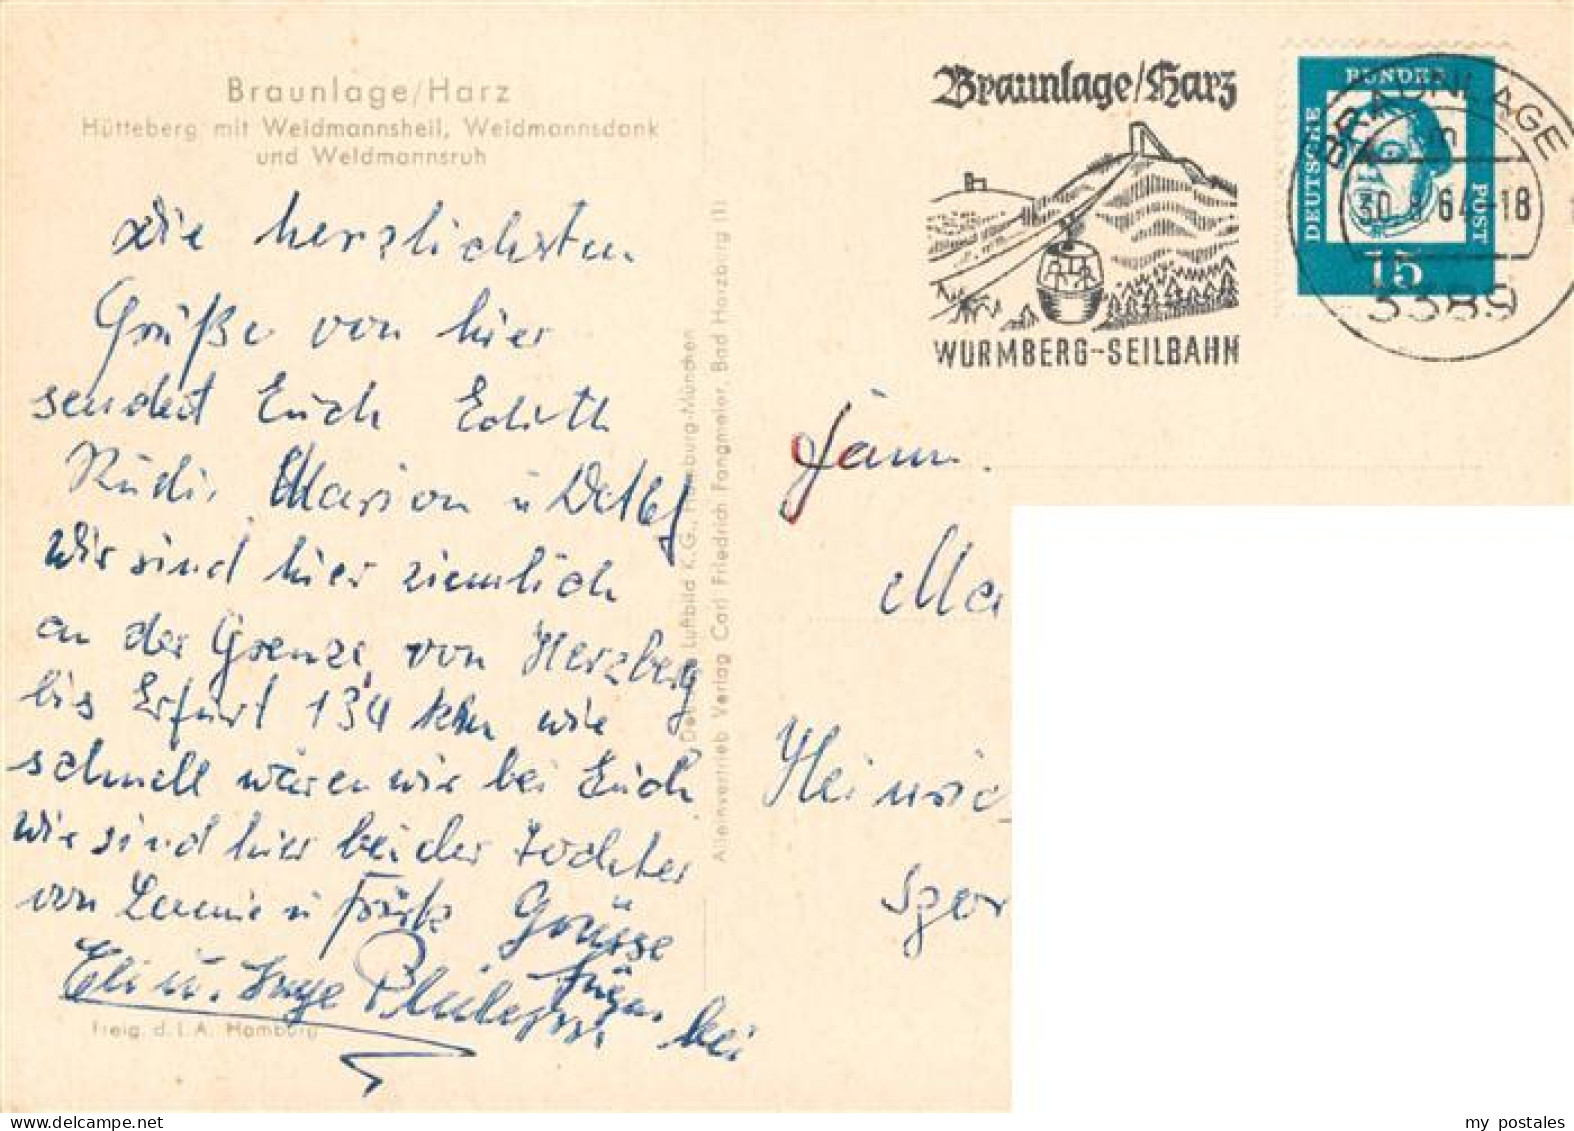 Braunlage/Harz
Hütteberg mit Weidmannsheil, Weidmannsdank
und Weidmannsruh
die herzlichsten
Grüße von hier
sendet Euch Edith
Rudi, Marion u Detlef
Wir sind hier ziemlich
an der Grenze, von Herzberg
bis Erfurt 134 km wie
schnell wären wir bei Euch
wir sind hier bei der Tochter
von u Grüsse
Elli u. Inge
bei
Freig. d. L.A. Hamburg
Luftbild K.G., Hamburg-München
Alleinvertrieb Verlag Carl Friedrich Fangmeier, Bad Harzburg (1)
Braunlage/Harz
WURMBERG-SEILBAHN
DEUTSCHE BUNDES POST
15
BRAUNLAGE
30.8.64-18
3389
Fam.
Ma
Heinric
my postales